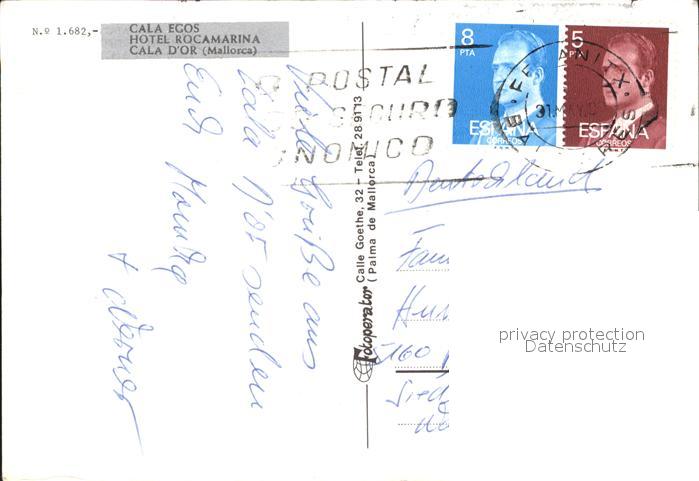 N.º 1.682,-
CALA EGOS
HOTEL ROCAMARINA
CALA D'OR (Mallorca)
POSTAL
SEGURO
NOMICO
8
PTA
ESPAÑA
CORREOS
5
PTA
ESPAÑA
CORREOS
FELANITX
31 MAY
Viele Grüße aus
Cala D'or senden
Euch
Fotoperator
Calle Goethe, 32 - Telef. 28-91-13
(Palma de Mallorca)
Deutschland
Fam
Hus
5160
Sied
privacy protection
Datenschutz